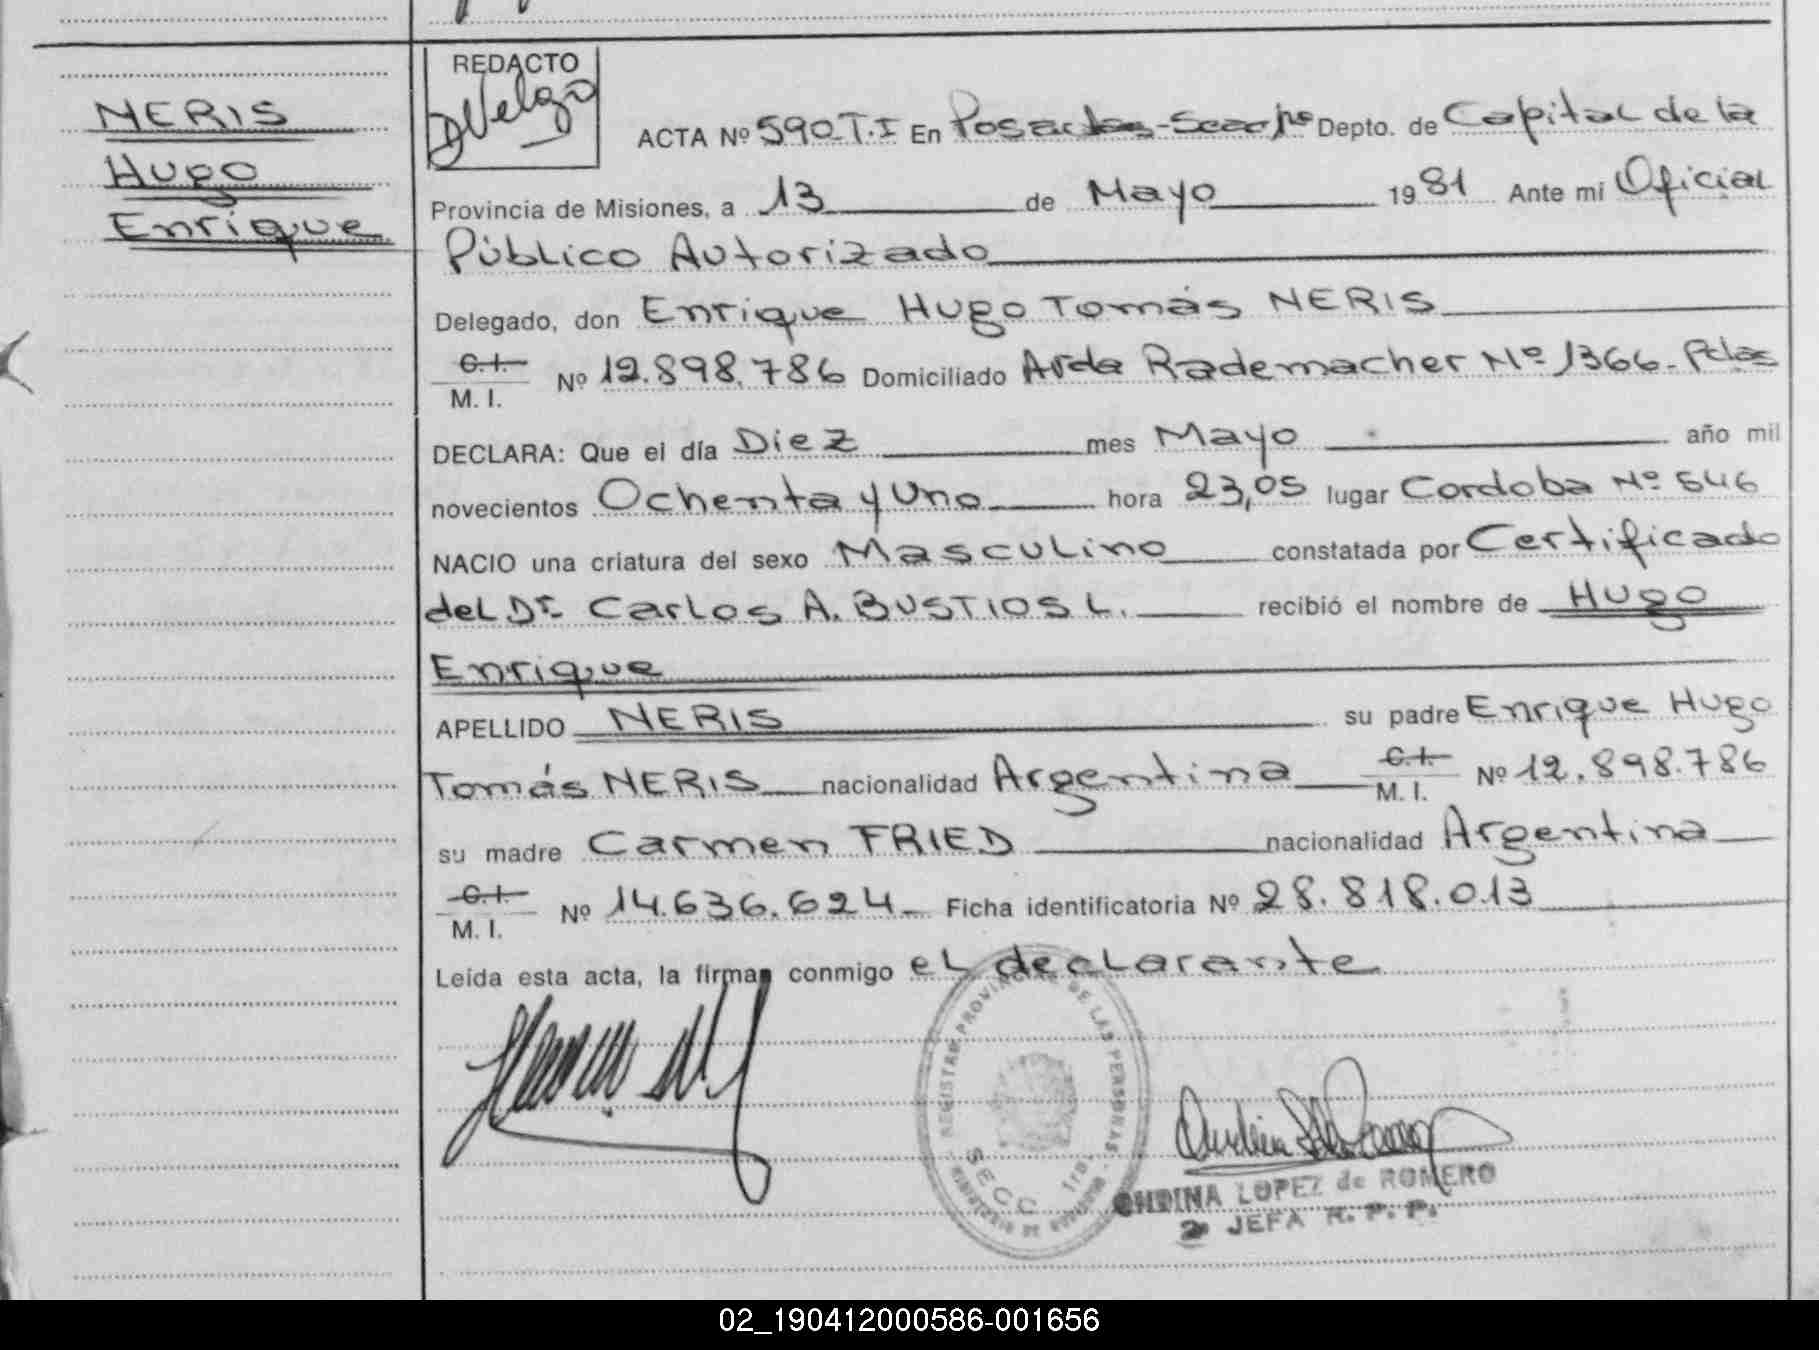 NERIS
Hugo
Enrique
REDACTO
DVelazo
ACTA Nº 590-T.I En Posadas-Secc 1ra Depto. de Capital de la
Provincia de Misiones, a 13 de Mayo 1981 Ante mi Oficial
Público Autorizado
Delegado, don Enrique Hugo Tomás NERIS
C.I.
M. I. Nº 12.898.786 Domiciliado Avda Rademacher Nº 1366-Pdas
DECLARA: Que el día Diez mes Mayo año mil
novecientos Ochenta y Uno hora 23,05 lugar Cordoba Nº 546
NACIO una criatura del sexo Masculino constatada por Certificado
del Dr. Carlos A. BUSTIOS L. recibió el nombre de Hugo
Enrique
APELLIDO NERIS su padre Enrique Hugo
Tomás NERIS nacionalidad Argentina C.I. M. I. Nº 12.898.786
su madre Carmen FRIED nacionalidad Argentina
C.I.
M. I. Nº 14.636.624 Ficha identificatoria Nº 28.818.013
Leída esta acta, la firman conmigo el declarante
REGISTRO PROVINCIAL DE LAS PERSONAS
SECC 1ra.
MINISTERIO DE GOBIERNO
ONDINA LOPEZ de ROMERO
2ª JEFA R. P. P.
02_190412000586-001656